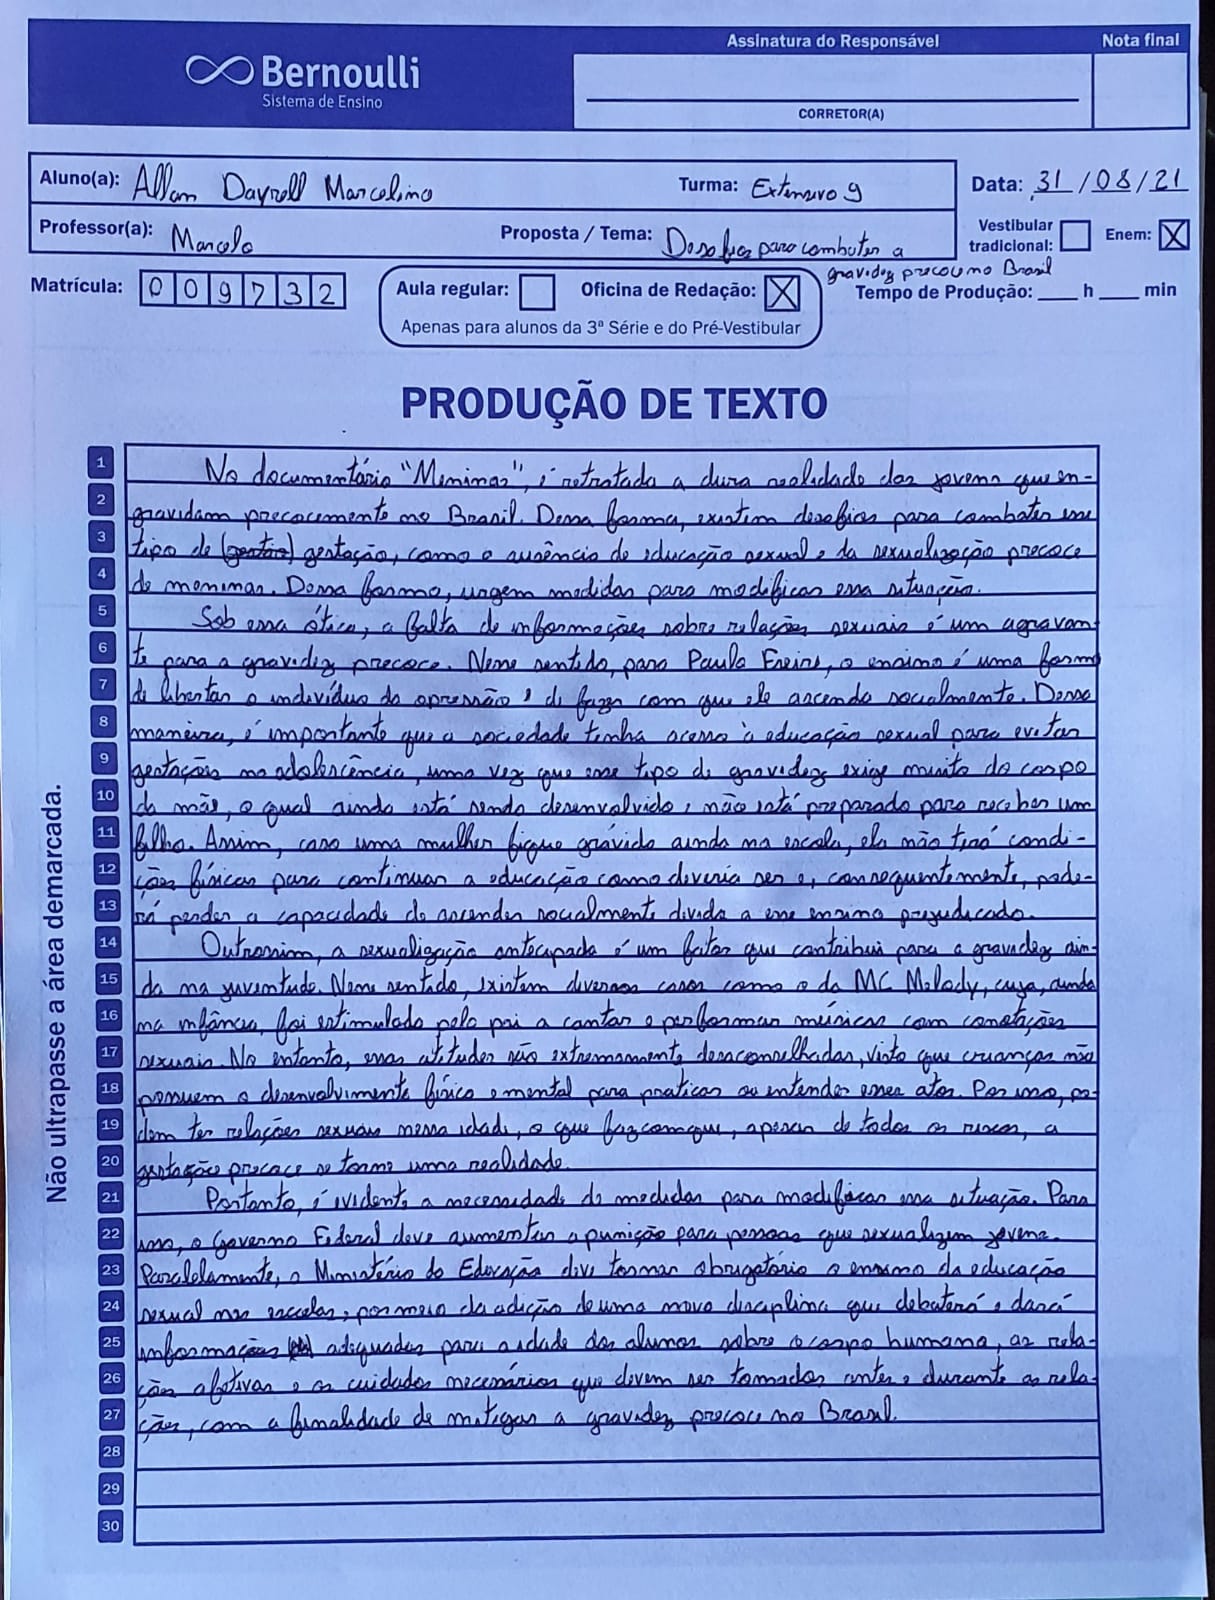 Assinatura do Responsável
Nota final
Bernoulli
Sistema de Ensino
CORRETOR(A)
Aluno(a): Allan Dayrell Marcelino
Turma: Extensivo 9
Data: 31/08/21
Professor(a): Marcelo
Proposta / Tema: Desafios para combater a
gravidez precoce no Brasil
Vestibular tradicional:
Enem: X
Matrícula: 009732
Aula regular:
Oficina de Redação: X
Tempo de Produção: ___ h ___ min
Apenas para alunos da 3ª Série e do Pré-Vestibular
PRODUÇÃO DE TEXTO
Não ultrapasse a área demarcada.
1 No documentário "Meninas", é retratada a dura realidade das jovens que en-
2 gravidam precocemente no Brasil. Dessa forma, existem desafios para combater esse
3 tipo de (gestão) gestação, como a ausência de educação sexual e da sexualização precoce
4 de meninas. Dessa forma, urgem medidas para modificar essa situação.
5 Sob essa ótica, a falta de informações sobre relações sexuais é um agravan
6 te para a gravidez precoce. Nesse sentido, para Paulo Freire, o ensino é uma forma
7 de libertar o indivíduo da opressão e de fazer com que ele ascenda socialmente. Dessa
8 maneira, é importante que a sociedade tenha acesso à educação sexual para evitar
9 gestações na adolescência, uma vez que esse tipo de gravidez exige muito do corpo
10 da mãe, o qual ainda está sendo desenvolvido e não está preparado para receber um
11 filho. Assim, caso uma mulher fique grávida ainda na escola, ela não terá condi-
12 ções físicas para continuar a educação como deveria ser e, consequentemente, pode-
13 rá perder a capacidade de ascender socialmente devida a esse ensino prejudicado.
14 Outrossim, a sexualização antecipada é um fator que contribui para a gravidez ain-
15 da na juventude. Nesse sentido, existem diversos casos como o da MC Melody, cuja, ainda
16 na infância, foi estimulada pelo pai a cantar e performar músicas com conotações
17 sexuais. No entanto, essas atitudes são extremamente desaconselhadas, visto que crianças não
18 possuem o desenvolvimento físico e mental para praticar ou entender esses atos. Por isso, po-
19 dem ter relações sexuais nessa idade, o que faz com que, apesar de todos os riscos, a
20 gestação precoce se torne uma realidade.
21 Portanto, é evidente a necessidade de medidas para modificar essa situação. Para
22 isso, o Governo Federal deve aumentar a punição para pessoas que sexualizem jovens.
23 Paralelamente, o Ministério da Educação deve tornar obrigatório o ensino da educação
24 sexual nas escolas, por meio da adição de uma nova disciplina que debaterá e dará
25 informações adequadas para a idade dos alunos sobre o corpo humano, as rela-
26 ções afetivas e os cuidados necessários que devem ser tomados antes e durante as rela-
27 ções, com a finalidade de mitigar a gravidez precoce no Brasil.
28
29
30